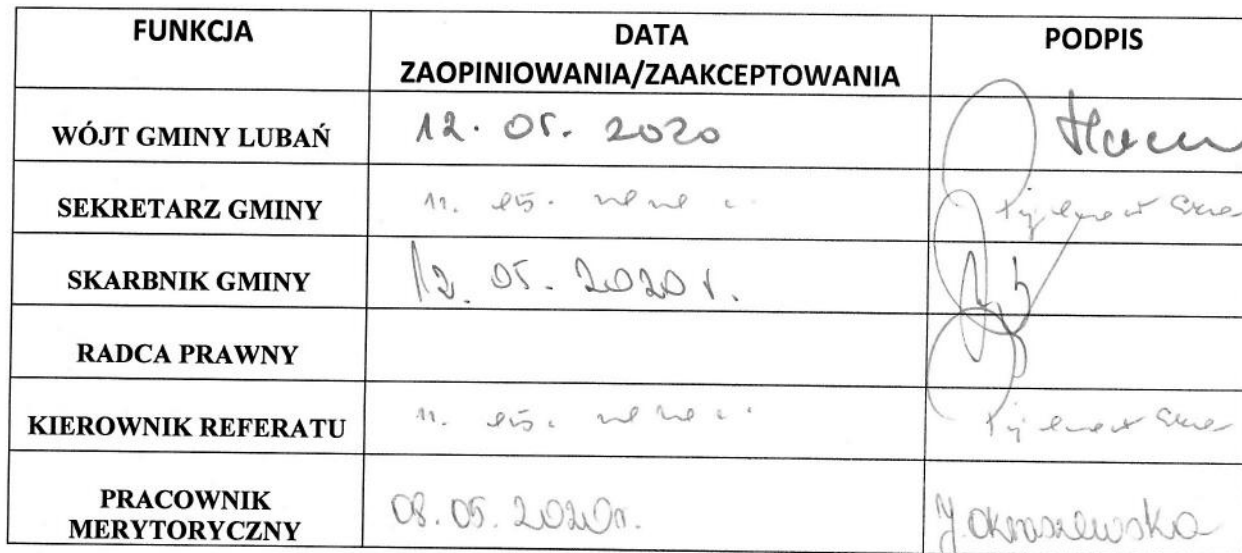 FUNKCJA DATA PODPIS
ZAOPINIOWANIA/ZAAKCEPTOWANIA
WÓJT GMINY LUBAŃ 12. 05. 2020
SEKRETARZ GMINY 11. 05.
SKARBNIK GMINY 12. 05. 2020 r.
RADCA PRAWNY
KIEROWNIK REFERATU 11. 05.
PRACOWNIK
MERYTORYCZNY 08. 05. 2020r.